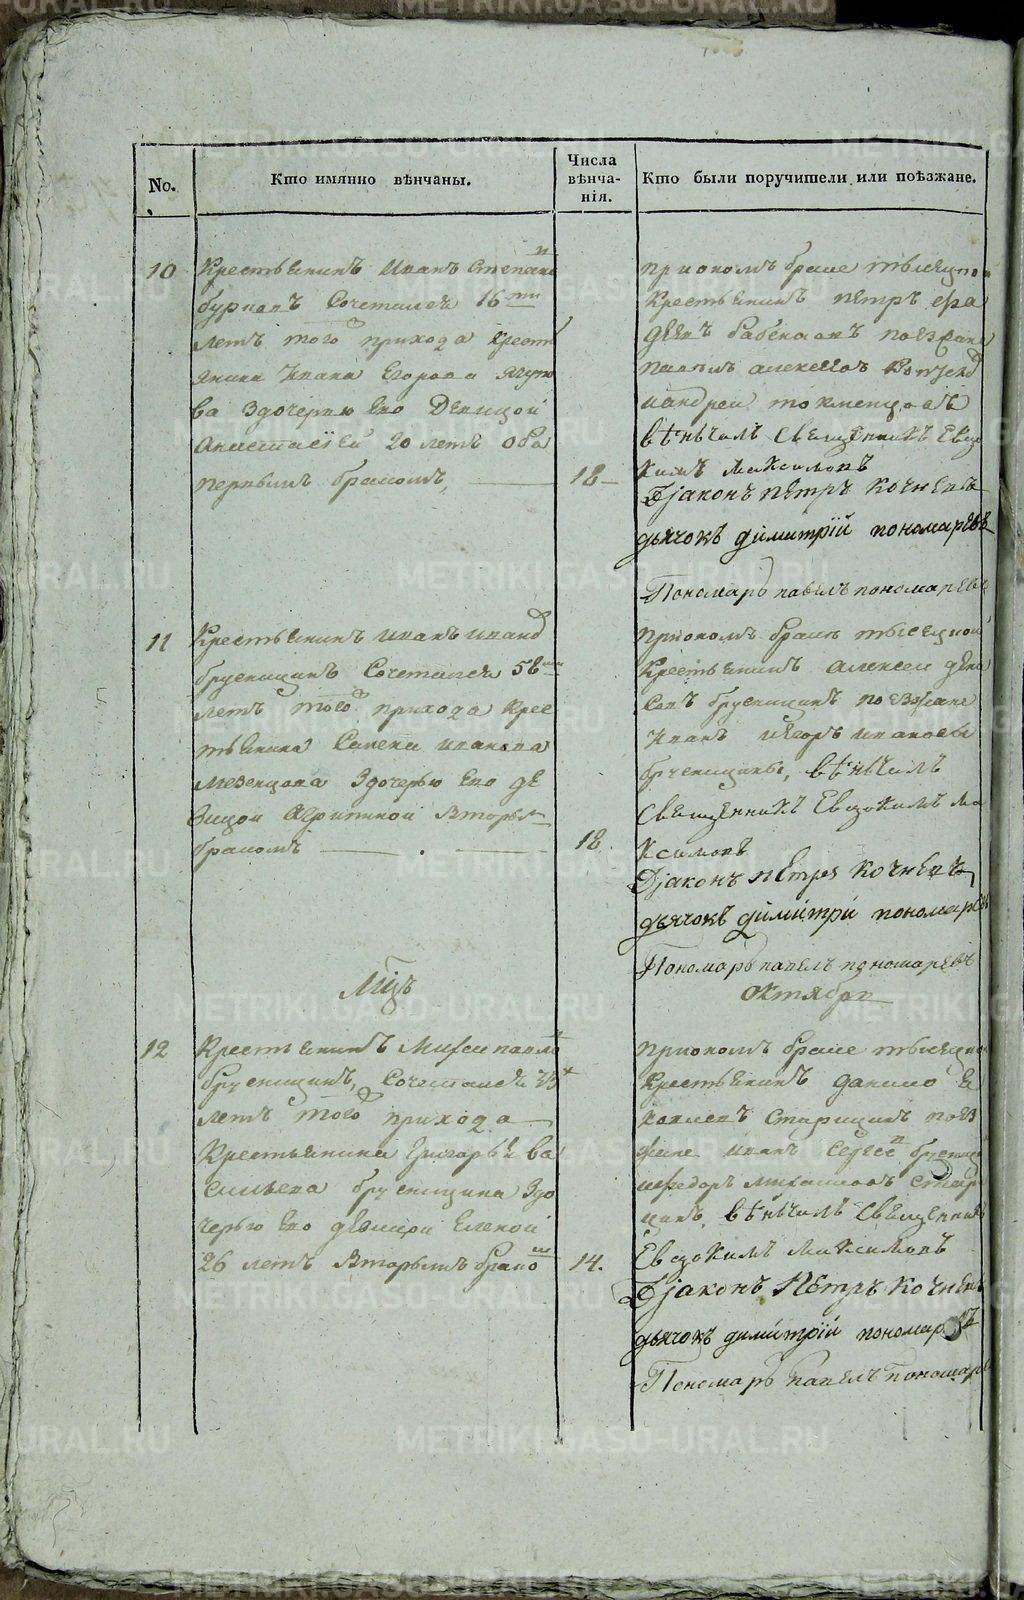 No.
Кто имянно вѣнчаны.
Числа
вѣнча-
нія.
Кто были поручители или поѣзжане.
10
Крестьенинъ Иванъ Степанов
бурнанъ Сочетался 16ти
летъ того прихода крести
янина Ивана Егорова
ва здочерью ево Девицой
Анастасіей 20 летъ оба
первымъ бракомъ,
18
приономъ браке тысецкой
крестьенинъ петръ фа
деевъ поезжана
павелъ алексеевъ
иандреи
вѣньчалъ Священникъ Евдо
кимъ Максимовъ
Діаконъ пЕтръ кочневъ
дьячокъ димитрїй пономаревъ
Пономарь павелъ пономаревъ
11
Крестьенинъ иванъ иванов
брусницинъ Сочетался 58
летъ того прихода крес
тьенина Савеки иванова
мезенцова здочерью ево де
вицой вторым
бракомъ
18
приономъ бракѣ тысецкой
Крестьенинъ алексеи дени
совъ брусницинъ поезжана
Иванъ иегоръ ивановы
брусницины, вѣньчалъ
Священникъ Евдокимъ Ма
ксимовъ
Діаконъ пЕтръ кочневъ
дьячокъ димитри пономаревъ
Пономарь павелъ пономаревъ
Мцъ
октября
12
Крестьенинъ павлов
брусницинъ, Сочетался
летъ того прихода
Крестьянина Григорья ва
сильева брусницина здо
черью ево девицой Еленой
26 летъ вторымъ браком
14.
приономъ браке тысецкой
крестьенинъ данило
Старицинъ поез
жане иванъ Сергеев брусниц
ифедоръ михаиловъ Стари
цинъ, вѣньчалъ Священникъ
Евдокимъ Максимовъ
Діаконъ пЕтръ кочневъ
дьячокъ димитрїй пономаревъ
Пономарь павелъ пономарев
METRIKI.GASO-URAL.RU